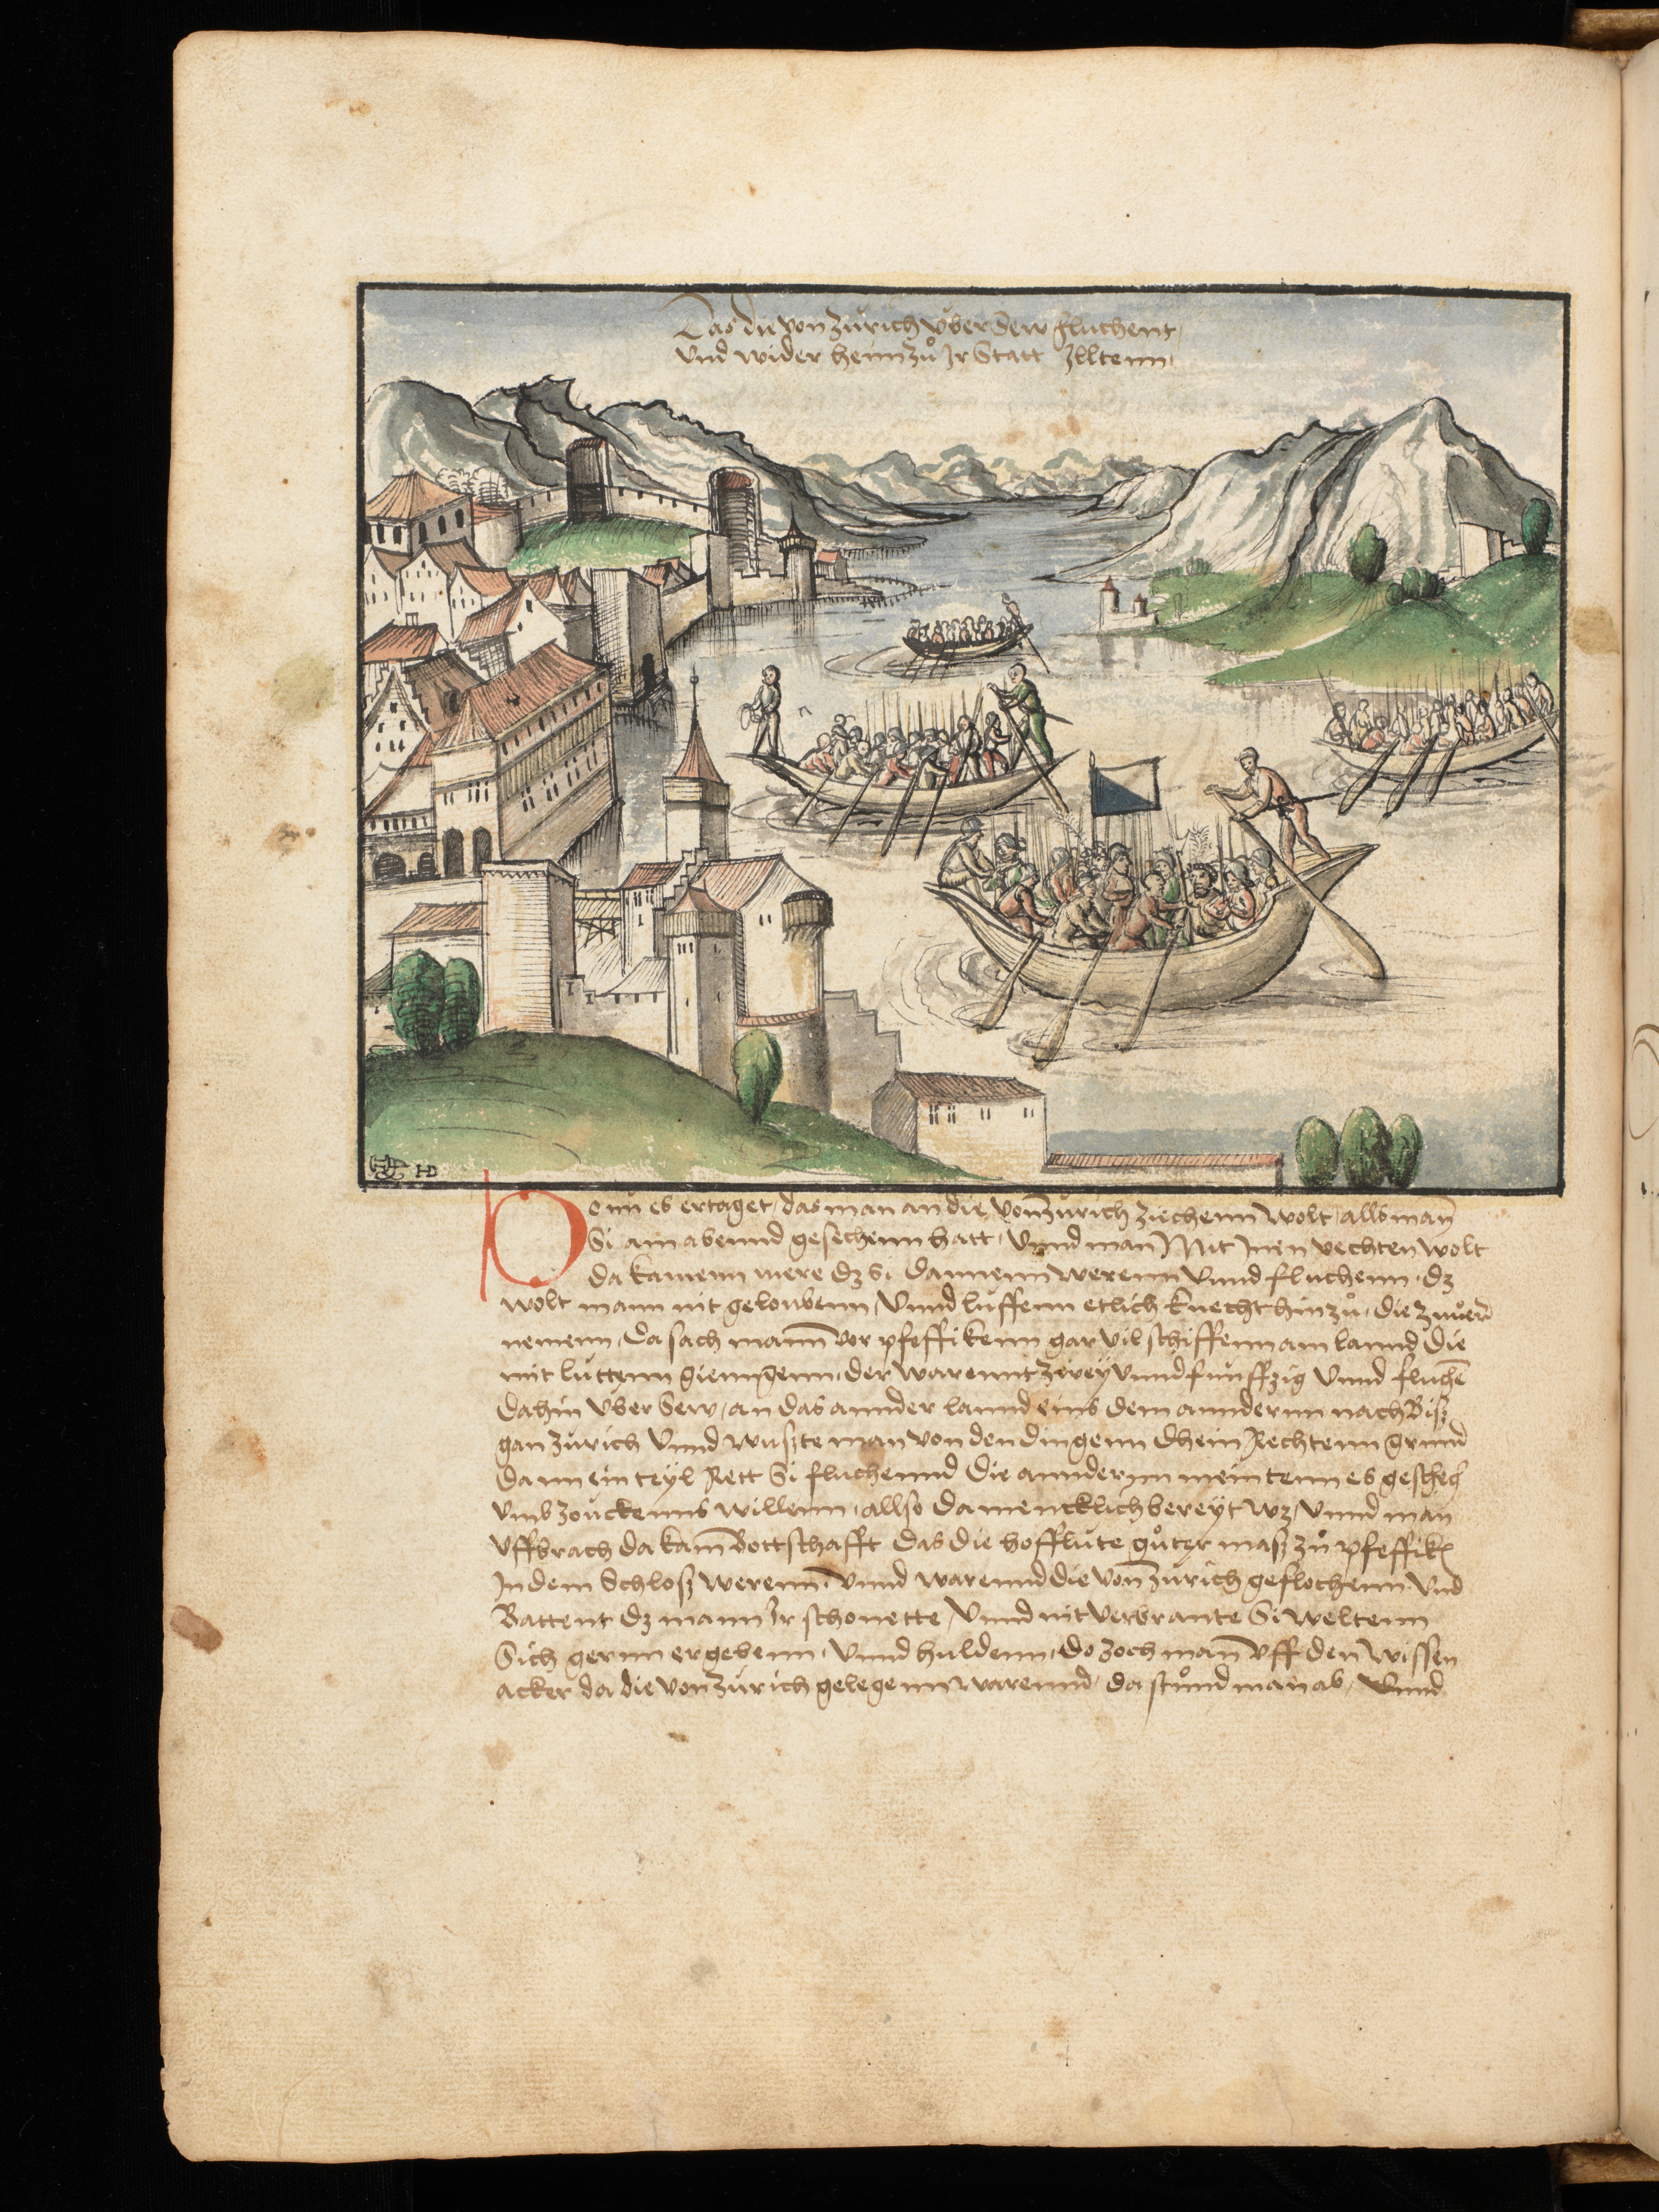 Das die von Zürich über Sew fluchent,
Und wider heim zů Ir Statt Illtenn,
HD
Do nu es ertaget, das man an die von Zürich ziechenn wolt, alls man̄
Si am abennd gesechenn hatt, Unnd man Mit Inen vechten wolt
da kamenn mere dz si dannenn werenn Unnd fluchenn, dz
wolt mann nit geloubenn, Unnd luffenn etlich knecht hinzů, die
nemenn, Da sach mann vor pfeffikenn gar vil schiffenn am lannd die
mit luttenn giengenn, der warennt zwey Unnd funffzig Unnd fluchē
dahin über Sew, an das annder lannd eins dem annderm nach Biß
gan Zürich Unnd wußte man von den dingenn dhein Rechtenn grund
dann ein teyl Rett Si fluchennd die annderm meintenn es geschech
umb zouckenns willenn, allso da mencklich bereyt wz, Unnd man
uffbrach da kam Bottschafft das die hofflüte gůter maß zů pfeffikē
In dem Schloß werenn, Unnd warennd die von Zürich geflochenn Und
Battent dz mann Ir schonette, Unnd nit verbrante Si weltenn
Sich gernn ergebenn, Unnd huldenn, do zoch man̄ uff den wissen
acker da die von Zürich gelegenn warennd, da stůnd man ab, Unnd